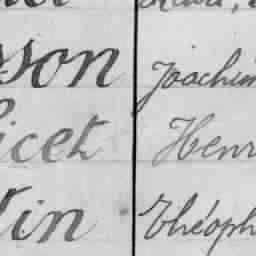 sson Joachim
icet Henr
tin Théoph